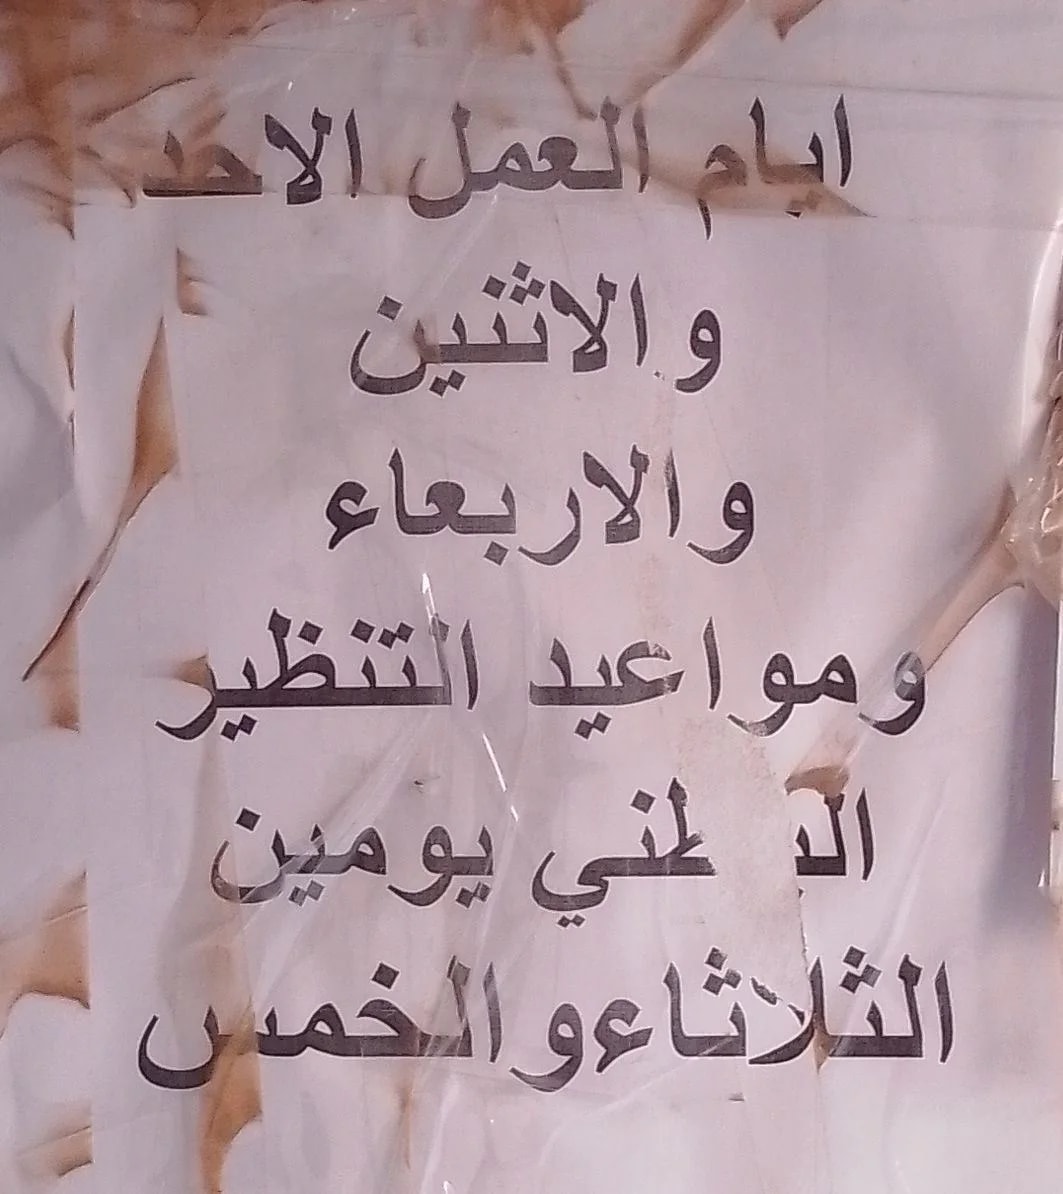 ايام العمل الاحد
والاثنين
والاربعاء
ومواعيد التنظير
يومين
الثلاثاءوالخمس